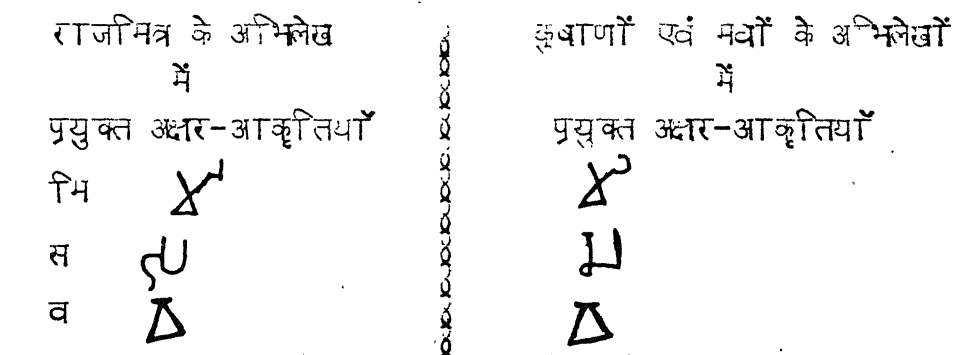 राजमित्र के अभिलेख
में
प्रयुक्त अक्षर-आकृतियाँ
मि
स
व
कुषाणों एवं मघों के अभिलेखों
में
प्रयुक्त अक्षर-आकृतियाँ